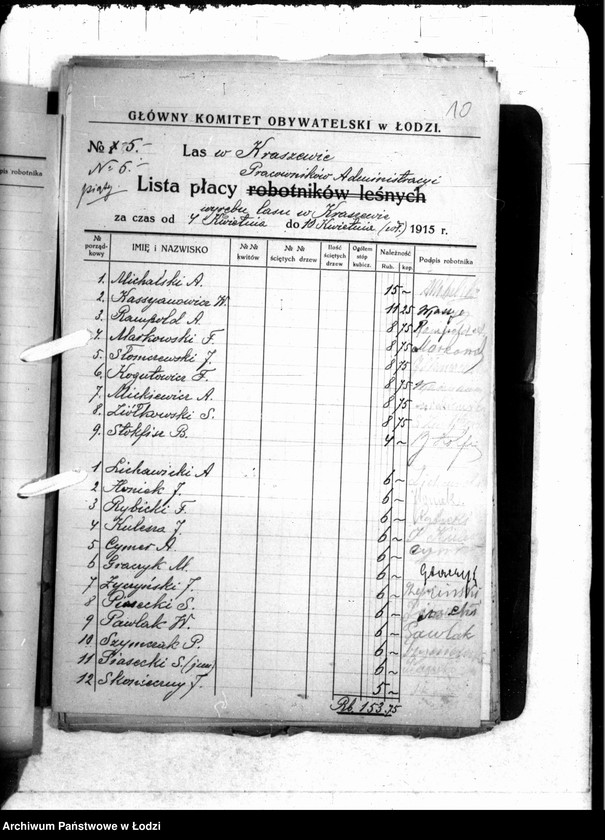 10
GŁÓWNY KOMITET OBYWATELSKI w ŁODZI.
№ 5.- Las w Kraszewie
N-6.- Pracowników Administracyi
piąty Lista płacy robotników leśnych
wyrębu lasu w Kraszewie
za czas od 4 Kwietnia do 10 Kwietnia (wł.) 1915 r.
№ porządkowy IMIĘ i NAZWISKO №№ kwitów №№ ściętych drzew Ilość ściętych drzew Ogółem stóp kubicz. Należność Rub. kop. Podpis robotnika
1. Michalski A. 15 ~
2. Kassyanowicz W. 11 25
3. Rampold A. 8 75
4. Markowski F. 8 75
5. Słomczewski J. 8 75
6. Kogutowicz F. 8 75
7. Mickiewicz A. 8 75
8. Ziółkowski S. 8 75
9. Stokfisz B. 4 ~
1 Lichawicki A 6 ~
2 Koniek J. 6 ~
3 Rybicki F. 6 ~
4 Kulesza J. 6 ~
5 Cymer A. 6 ~
6 Graczyk M. 6 ~
7 Życzyński J. 6 ~
8 Piasecki S. 6 ~
9 Pawlak W. 6 ~ Pawlak
10 Szymczak P. 6 ~
11 Piasecki S. (jun) 6 ~
12 Skonieczny J. 5 ~
Rb. 153.75
pis robotnika
Archiwum Państwowe w Łodzi